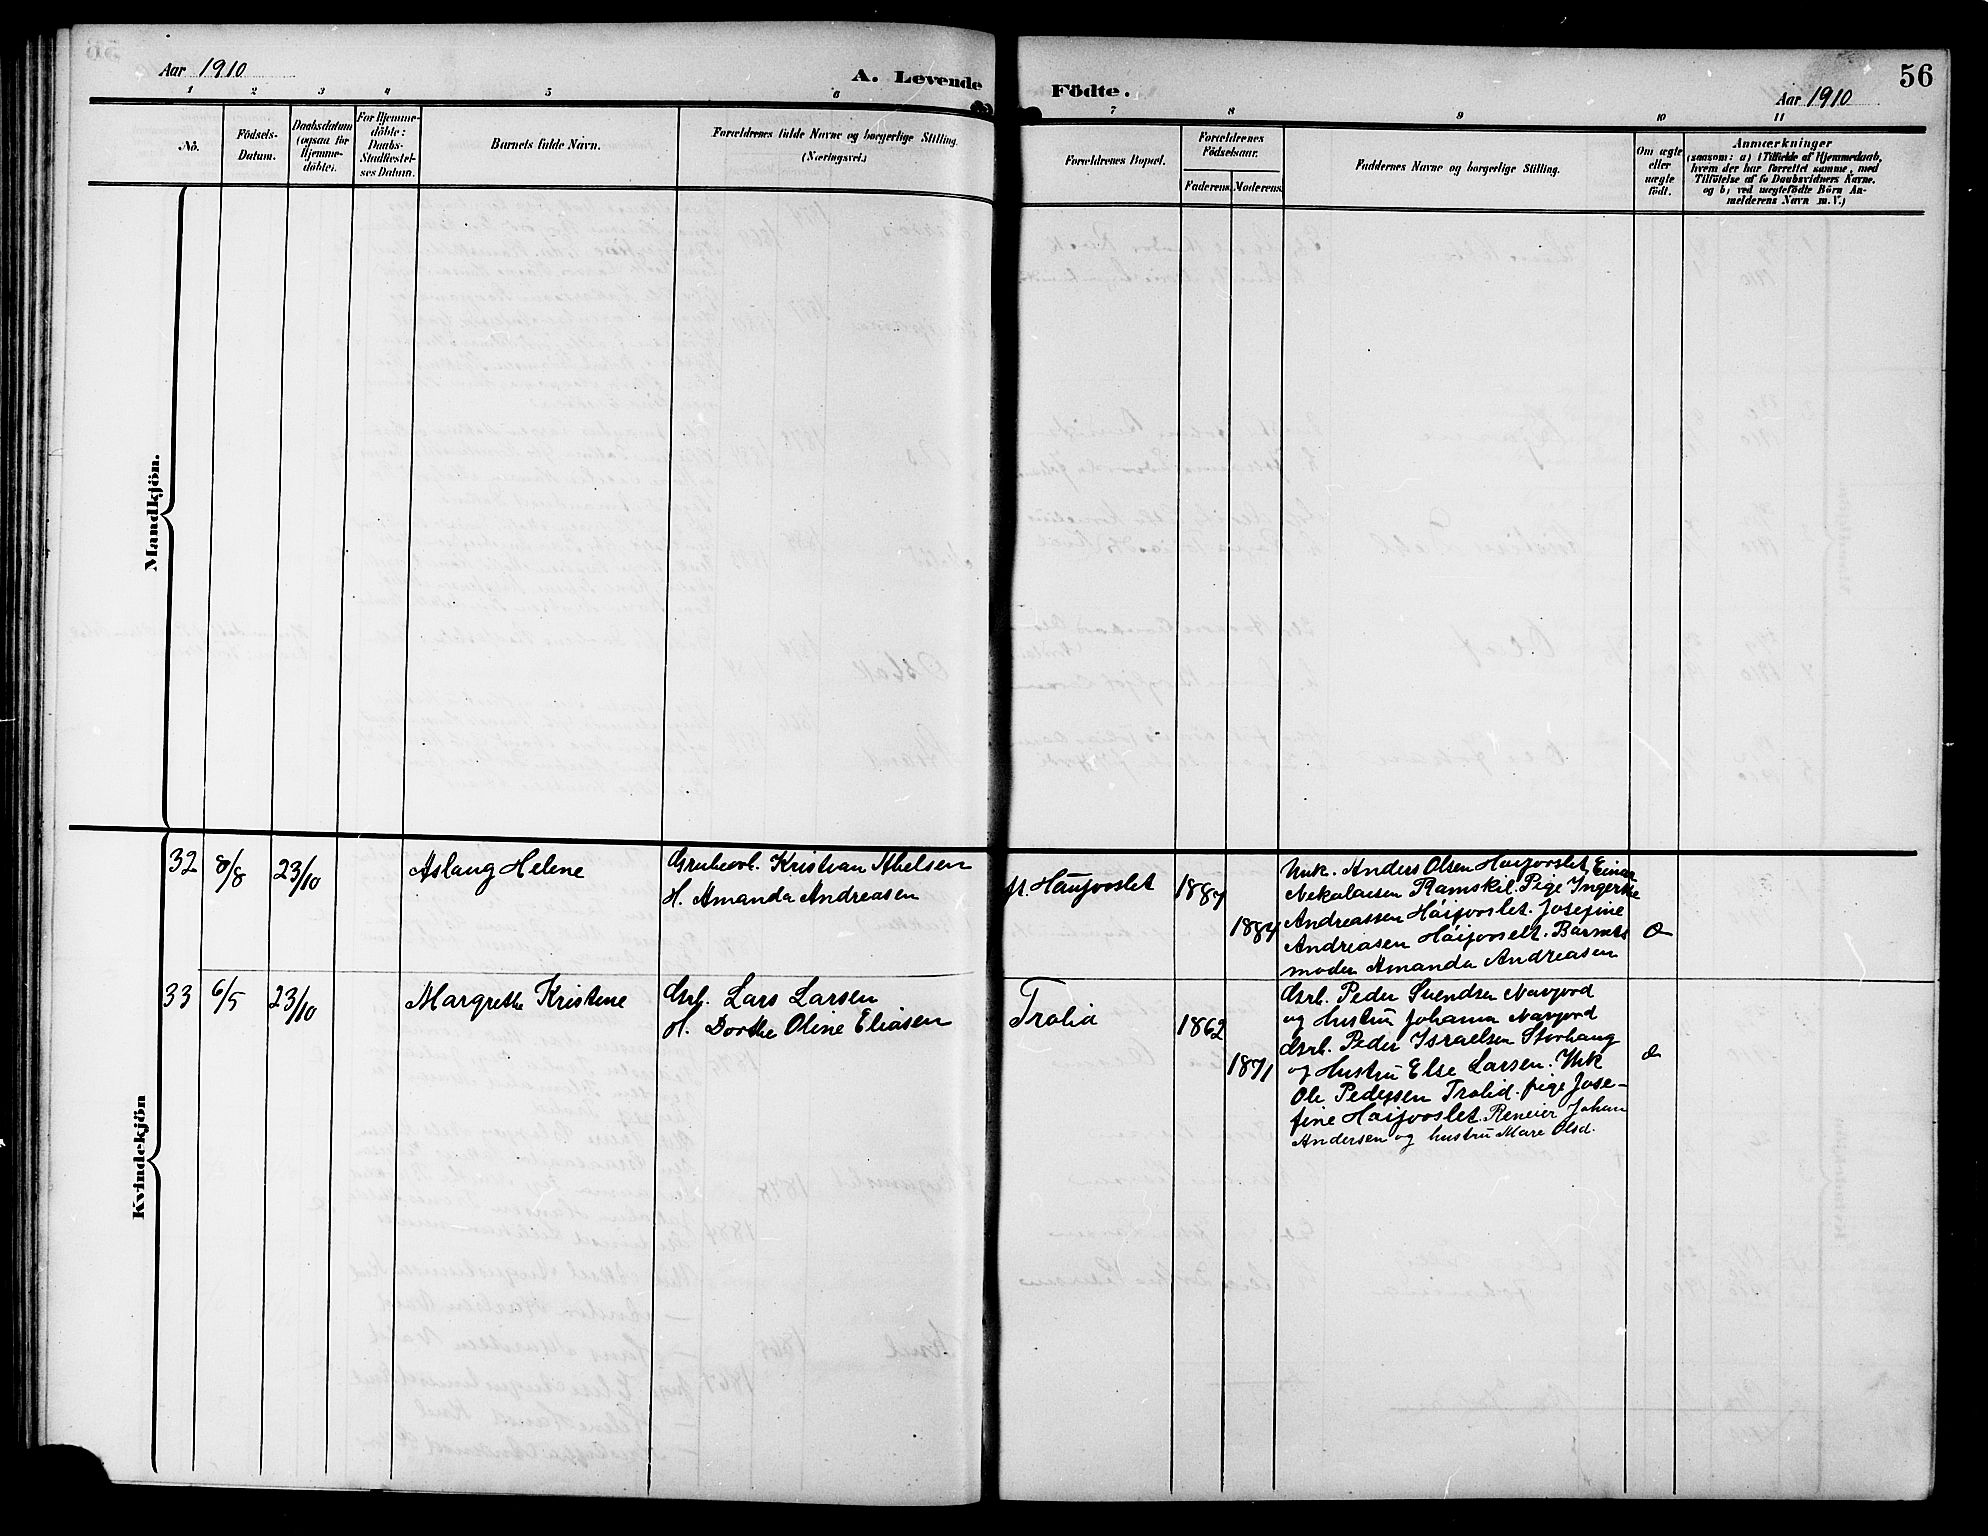 Aar 1910
A. Levende
Födte.
Aar 1910
56
1 2 3 4 5 6 7 8 9 10 11
No.
Födsels-
Datum.
Daabsdatum
(ogsaa for
Hjemme-
döbte).
For Hjemme-
döbte:
Daabs-
Stadfæstel-
ses Datum.
Barnets fulde Navn.
Forældrenes fulde Navne og borgerlige Stilling.
(Næringsvei.)
Forældrenes Bopæl.
Forældrenes
Födselsaar.
Faderens. Moderens.
Faddernes Navne og borgerlige Stilling.
Om ægte
eller
uægte
født.
Anmærkninger
(saasom: a) i Tilfælde af Hjemmedaab,
hvem der har forrettet samme, med
Tilföielse af to Daabsvidners Navne.
og b) ved uægtefödte Börn An-
melderens Navn m. V.)
Mandkjön.
Kvindekjön
32 8/8 23/10
Aslaug Helene
Grubearb. Kristian
H. Amanda Andreasen
1887
1884
Unk. Anders Olsen Haiforslet, Einar
Nekolaisen Ramskil. Pige
Andreassen Haiforslet. Josefine
Andreasen. Barnets
moder Amanda Andreasen
33 6/5 23/10
Margrethe Kristine
Grb. Lars Larsen
H. Dorthe Oline Eliasen
Trolid
1862
1871
Grb. Peder Svendsen Narfjord
og Hustru Johanna Narfjord
Grb. Peder Israelsen Storhaug
og Hustru Else Larsen. Unk
Ole Pedersen Trolid. pige Jose-
fine Haiforslet. Reneier Johan
Andersen og hustru Mare Olsd.